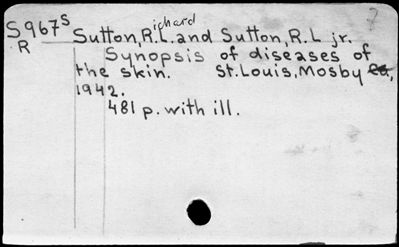 S967s Sutton, Richard L. and Sutton, R. L jr.
R Synopsis of diseases of
the skin. St. Louis, Mosby
1942.
481 p. with ill.